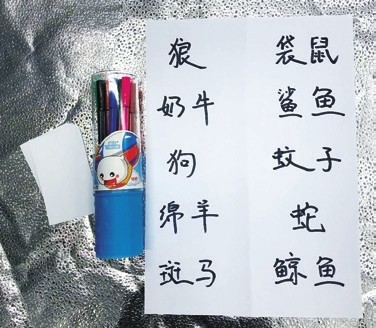 狼 袋鼠
奶牛 鲨鱼
狗 蚊子
绵羊 蛇
斑马 鲸鱼